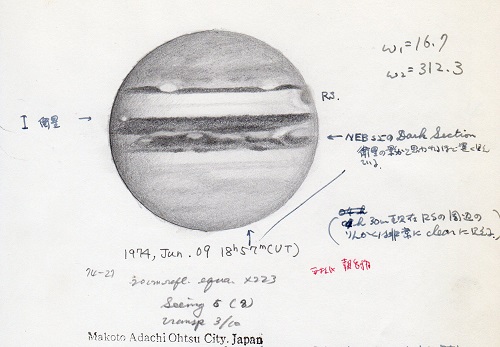 ω₁=16.7
ω₂=312.3
RS.
I 衛星 →
← NEBs上の Dark Section
衛星の影かと思われるほど黒く
いる。
30m 現在 RSの周辺の
りんかくは非常に clear に見える
1974, Jun. 09 18ʰ57ᵐ(UT)
74-27
20cm refl. equa. ×223
Seeing 5 (8)
transp 3/10
Makoto Adachi Ohtsu City. Japan